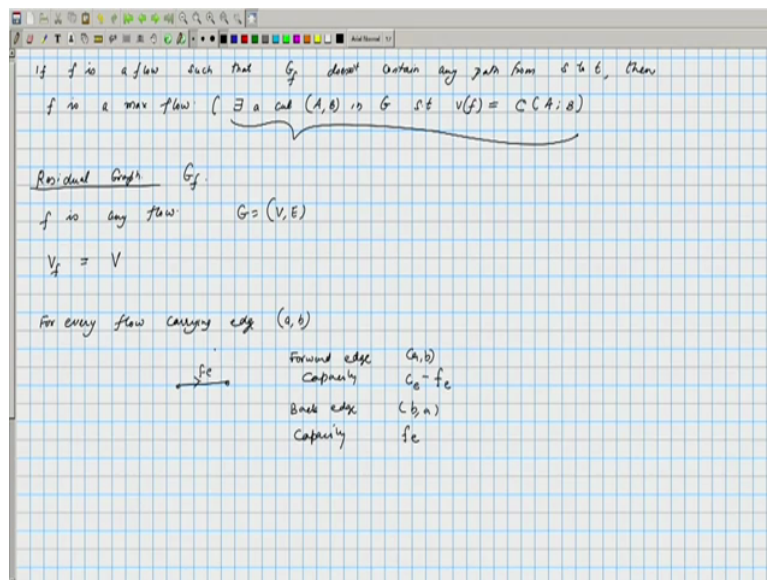 If f is a flow such that G_f doesn't contain any path from s to t, then
f is a max flow. ( ∃ a cut (A,B) in G s.t v(f) = C(A:B)
Residual Graph G_f.
f is any flow. G = (V, E)
V_f = V
For every flow carrying edge (a,b)
Forward edge (a,b)
fe Capacity c_e - f_e
Back edge (b,a)
Capacity f_e